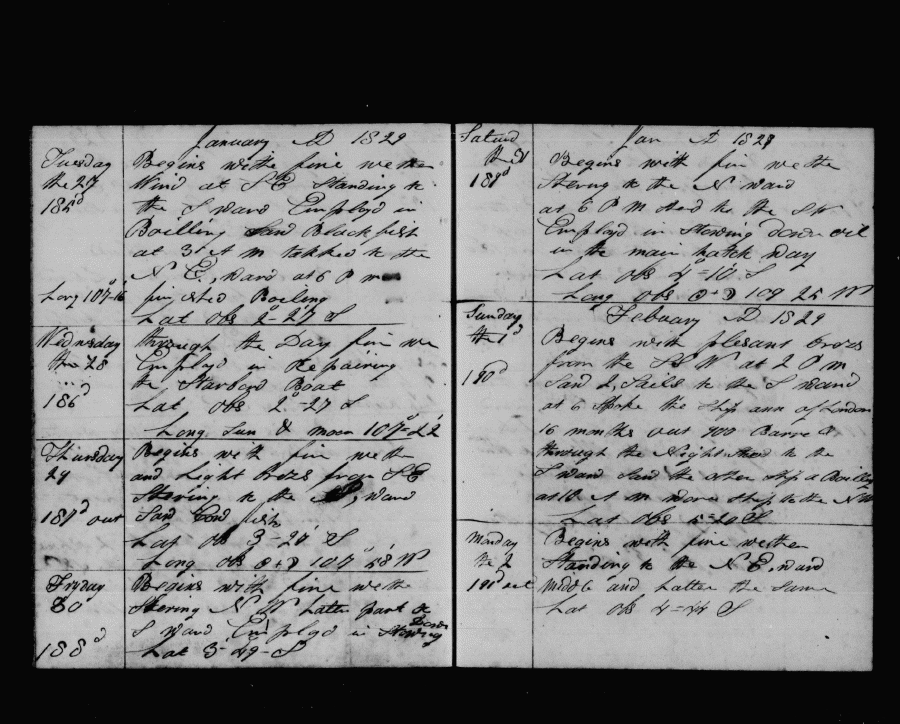 January AD 1829
Tuesday
the 27
185d
Begins with fine wethe
Wind at SE Standing to
the S ward Employd in
Boilling and Blackfish
at 3 A m takked to the
N E, ward at 6 P m
finished Boiling
Long 107-16
Lat obs 2-27 S
Wednsday
the 28
186d
through the Day fine we
Employd in Repairing
the Starbord Boat
Lat obs 2-27 S
Long Sun & moon 107-22
Thursday
29
187d out
Begins with fine wethe
and Light brezs from SE
Stering to the ward
Saw
Lat ob 3-20 S
Long obs 107 58 W
Friday
30
188d
Begins with fine wethe
Stering N W Latter part to
S ward Employd in Stowing
Down
Lat 3-49-S
Saturd
the 31
189d
Jan AD 1829
Begins with fine wethe
Stering to the N ward
at 6 P M to the S W
Employd in Stowing down oil
in the main hatch way
Lat obs 4-10 S
Long obs 109 25 W
Sunday
the 1d
190d
Febuary AD 1829
Begins with plesant brezs
from the at 2 P m
Saw 2, Sails to the S ward
at 6 Spoke the Ship ann of London
16 months out 900 Barre
through the Night to the
S ward Saw the other ship a Boilling
at 10 A m wore Ship to the N W
Lat obs 5-20 S
Monday
the 2
190d out
Begins with fine wether
Standing to the N E, ward
middle and Latter the Same
Lat obs 4-44 S